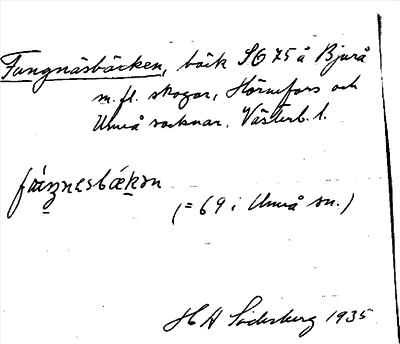 Fungnäsbäcken, bäck SG 75 å Bjurå
m. fl. skogar, Hörnefors och
Umeå socknar. Västerb. l.
(= 69 i Umeå sn.)
H A Söderberg 1935